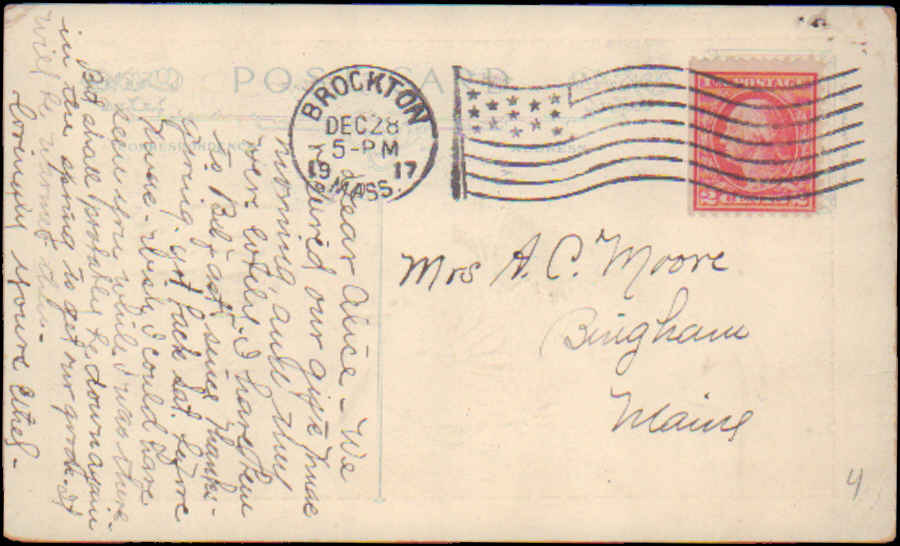 POST CARD
CORRESPONDENCE
ADDRESS
BROCKTON
DEC 28
5-PM
19 17
MASS.
U.S. POSTAGE
2 CENTS 2
Mrs A. C. Moore
Bingham
Maine
4
Dear Alice - We
received our gifts Xmas
morning and they
were lovely. I have been
to B&F just since Thanks-
giving, got back Sat. before
Xmas. Wish I could have
seen you while I was there
But shall probably be down again
in the spring to get our goods. If
will be
Lovingly yours Ethel -